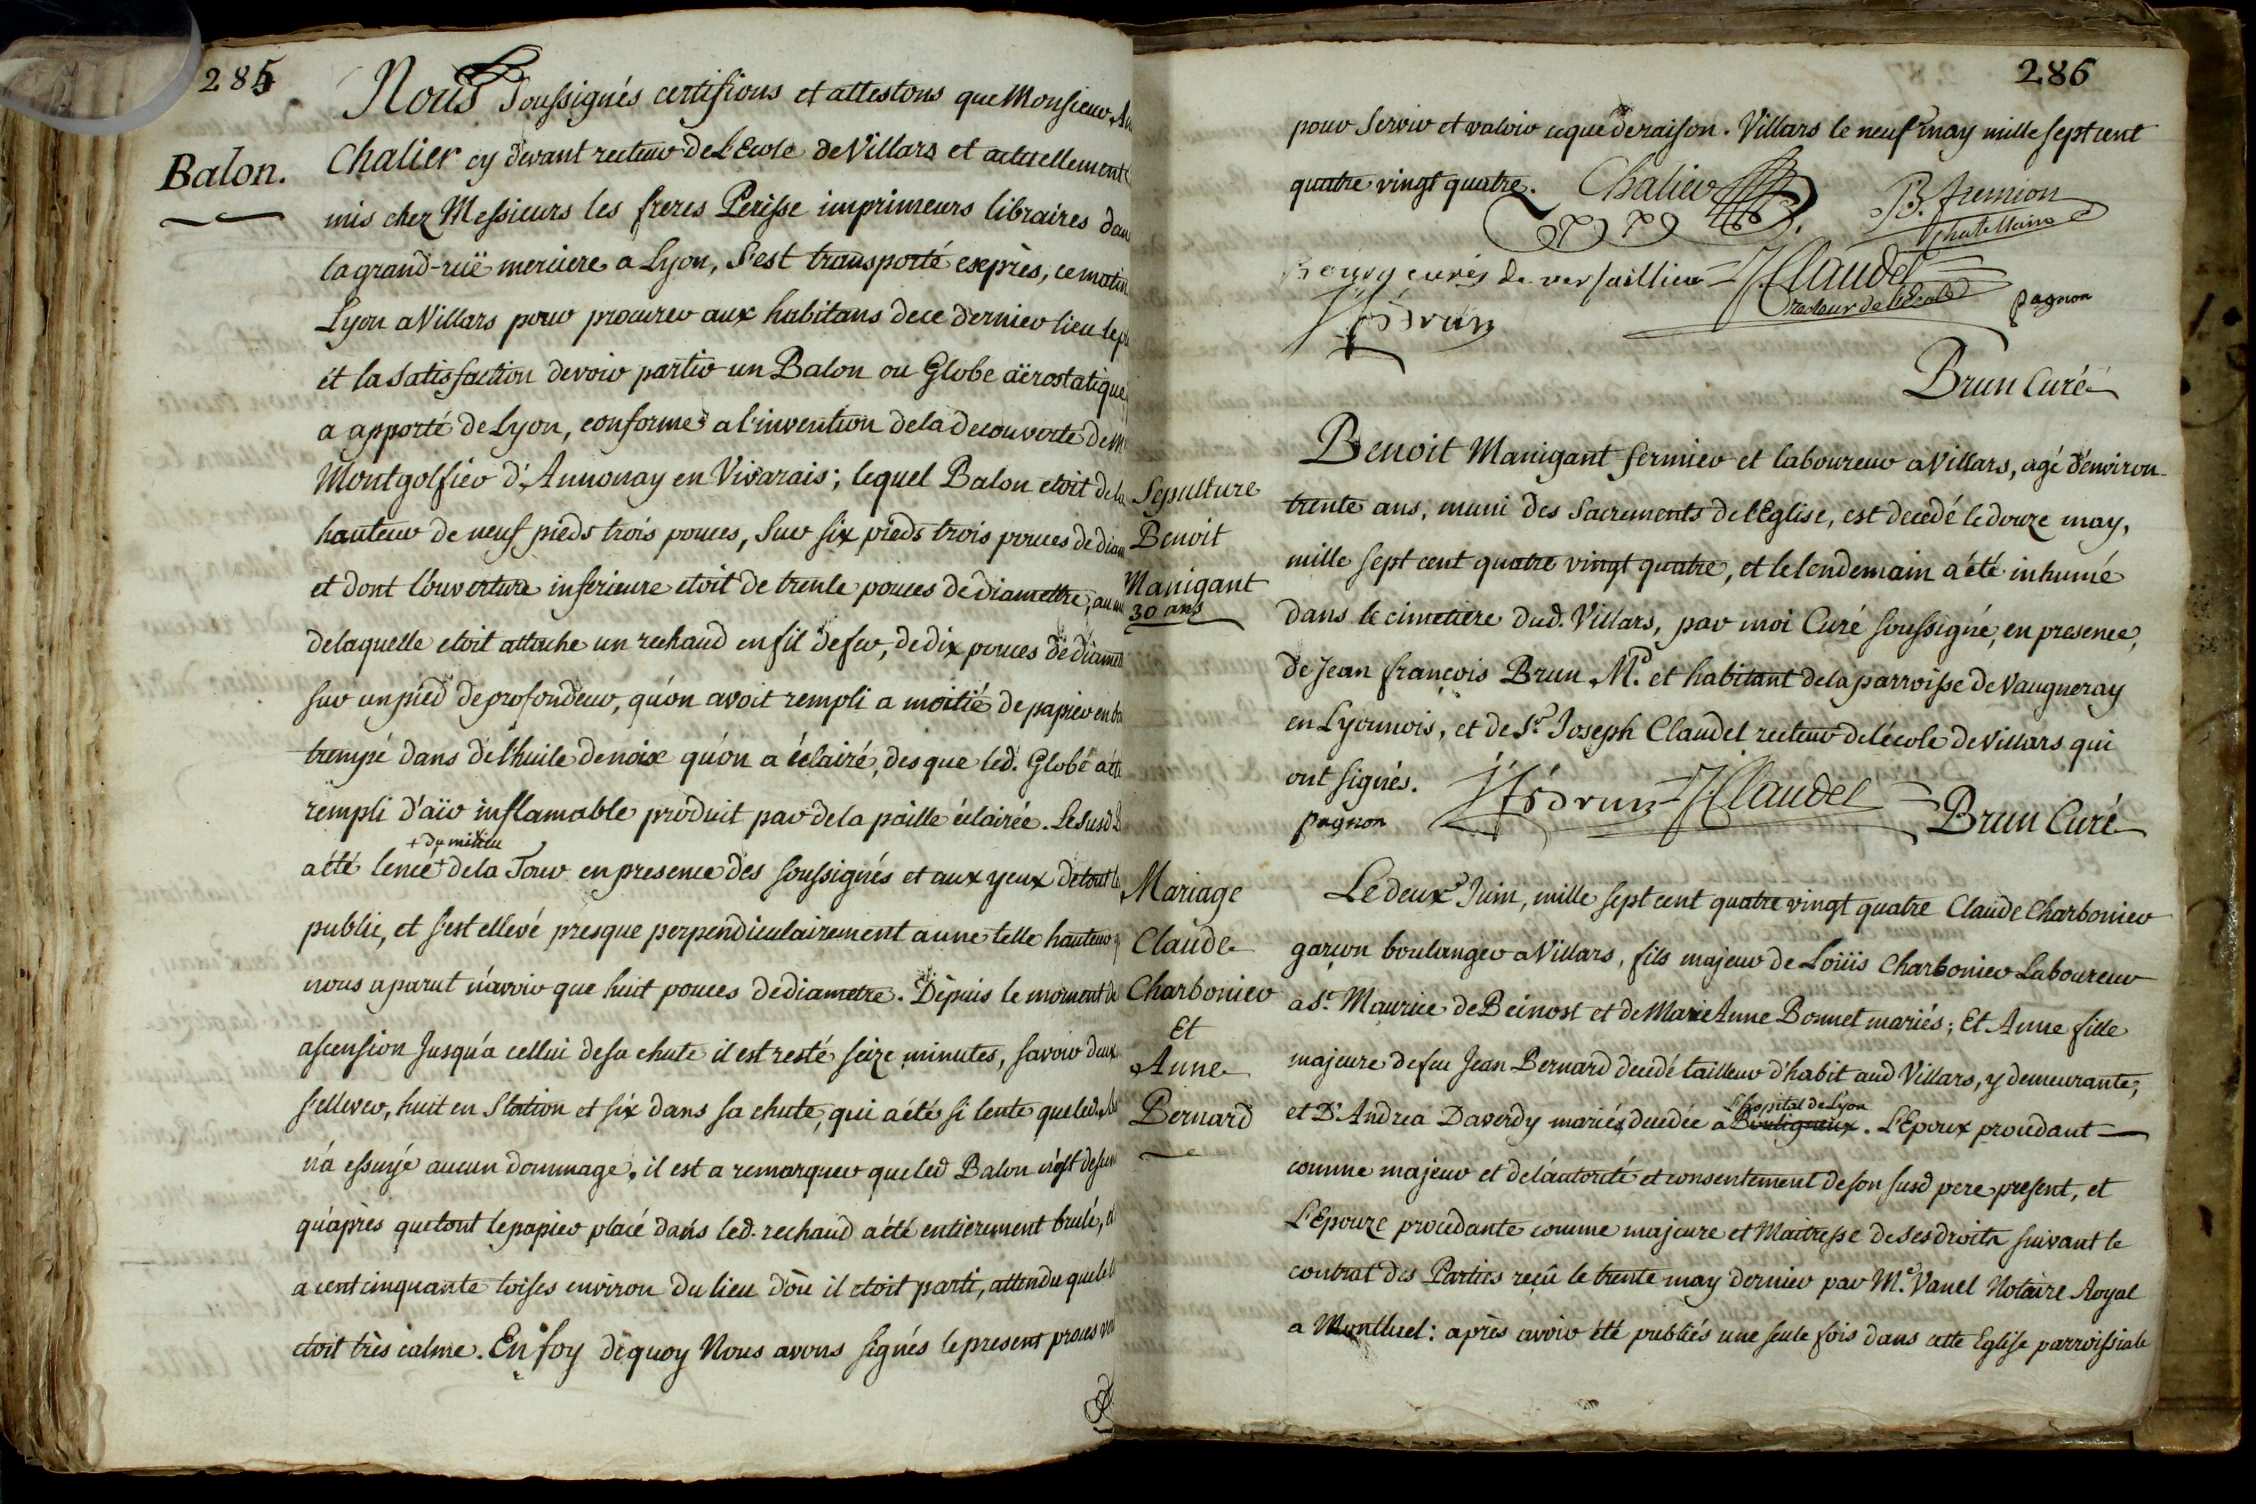 285
Balon.
Nous Soussignés certifions et attestons que Monsieur
Chalier cy devant recteur de L'Ecole de Villars et actuellement
mis chez Messieurs les freres Perisse imprimeurs libraires
la grand-ruë merciere a Lyon, S'est transporté exeprès, ce matin
Lyon a Villars pour procurer aux habitans de ce dernier lieu le
et la Satisfaction de voir partir un Balon ou Globe aërostatique
a apporté de Lyon, conforme a l'invention de la decouverte de
Montgolfier d'Annonay en Vivarais; lequel Balon etoit de la
hauteur de neuf pieds trois pouces, Sur six pieds trois pouces de
et dont l'ouverture inferieure etoit de trente pouces de diamettre,
de laquelle etoit attaché un rechaud en fil de fer, de dix pouces de
sur un pied de profondeur, qu'on avoit rempli a moitié de papier en
trempé dans de l'huile de noix qu'on a éclairé, des que led. Globe a
rempli d'aïr inflamable produit par de la paille éclairée. Le susd
+ du milieu
a été lencé + de la Tour en presence des soussignés et aux yeux de tout le
public, et s'est ellevé presque perpendiculairement a une telle hauteur
nous aparut n'avoir que huit pouces de diametre. Dèpuis le moment de
ascension Jusqu'a cellui de sa chute il est resté seize minutes, savoir deux
s'ellever, huit en Station et six dans sa chute, qui a été si lente que led.
n'a essuyé aucun dommage. il est a remarquer que led Balon n'est
qu'après que tout le papier placé dans led. rechaud a été entierement brulé,
a cent cinquante toises environ du lieu d'où il etoit parti, attendu que le
etoit très calme. En foy dequoy Nous avons signés le present proces
286
pour servir et valoir ce que de raison. Villars le neuf may mille sept cent
quatre vingt quatre. Chalier B. fremion
chatellain
curés de versaillieu J Claudel
recteur de l'Ecole pagnon
Brun Curé
Sepulture
Benoit
Manigant
30 ans
Benoit Manigant fermier et laboureur a Villars, agé d'environ
trente ans, muni des Sacrements de l'Eglise, est decedé le douze may,
mille sept cent quatre vingt quatre, et le lendemain a été inhumé
dans le cimetiere dud. Villars, par moi Curé soussigné, en presence,
de Jean françois Brun Md. et habitant de la parroisse de Vaugneray
en Lyonnois, et de Sr. Joseph Claudel recteur de l'école de Villars qui
ont signés. J Claudel
pagnon Brun Curé
Mariage
Claude
Charbonier
Et
Anne
Bernard
Le deux Juin, mille sept cent quatre vingt quatre Claude Charbonier
garçon boulanger a Villars, fils majeur de Loüis Charbonier Laboureur
a St. Maurice de Beinost et de Marie Anne Bonnet mariés; Et Anne fille
majeure de feu Jean Bernard decedé tailleur d'habit aud Villars, y demeurante,
L'hopital de Lyon
et D'Andrea Daverdy mariés, decedée a Bouligneux. L'Epoux procedant
comme majeur et de l'autorité et consentement de son susd pere present, et
L'Epouze procedante comme majeure et Maitresse de ses droits suivant le
contrat des Parties reçû le trente may dernier par Me. Vanel Notaire Royal
a Montluel: après avoir été publiés une seule fois dans cette Eglise parroissiale